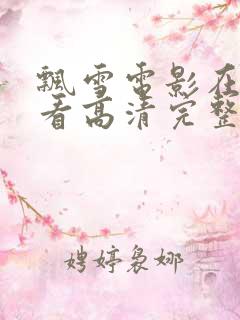 飘雪电影在
看高清完整
娉婷袅娜